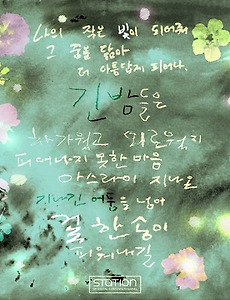 나의 작은 빛이 되어줘
그 꿈을 닮아
더 아름답게 피어나
긴 밤들은
차가웠고 외로웠지
피어나지 못한 마음
아스라이 지나고
기나긴 어둠을 넘어
꽃 한 송이
피워내길
STATION